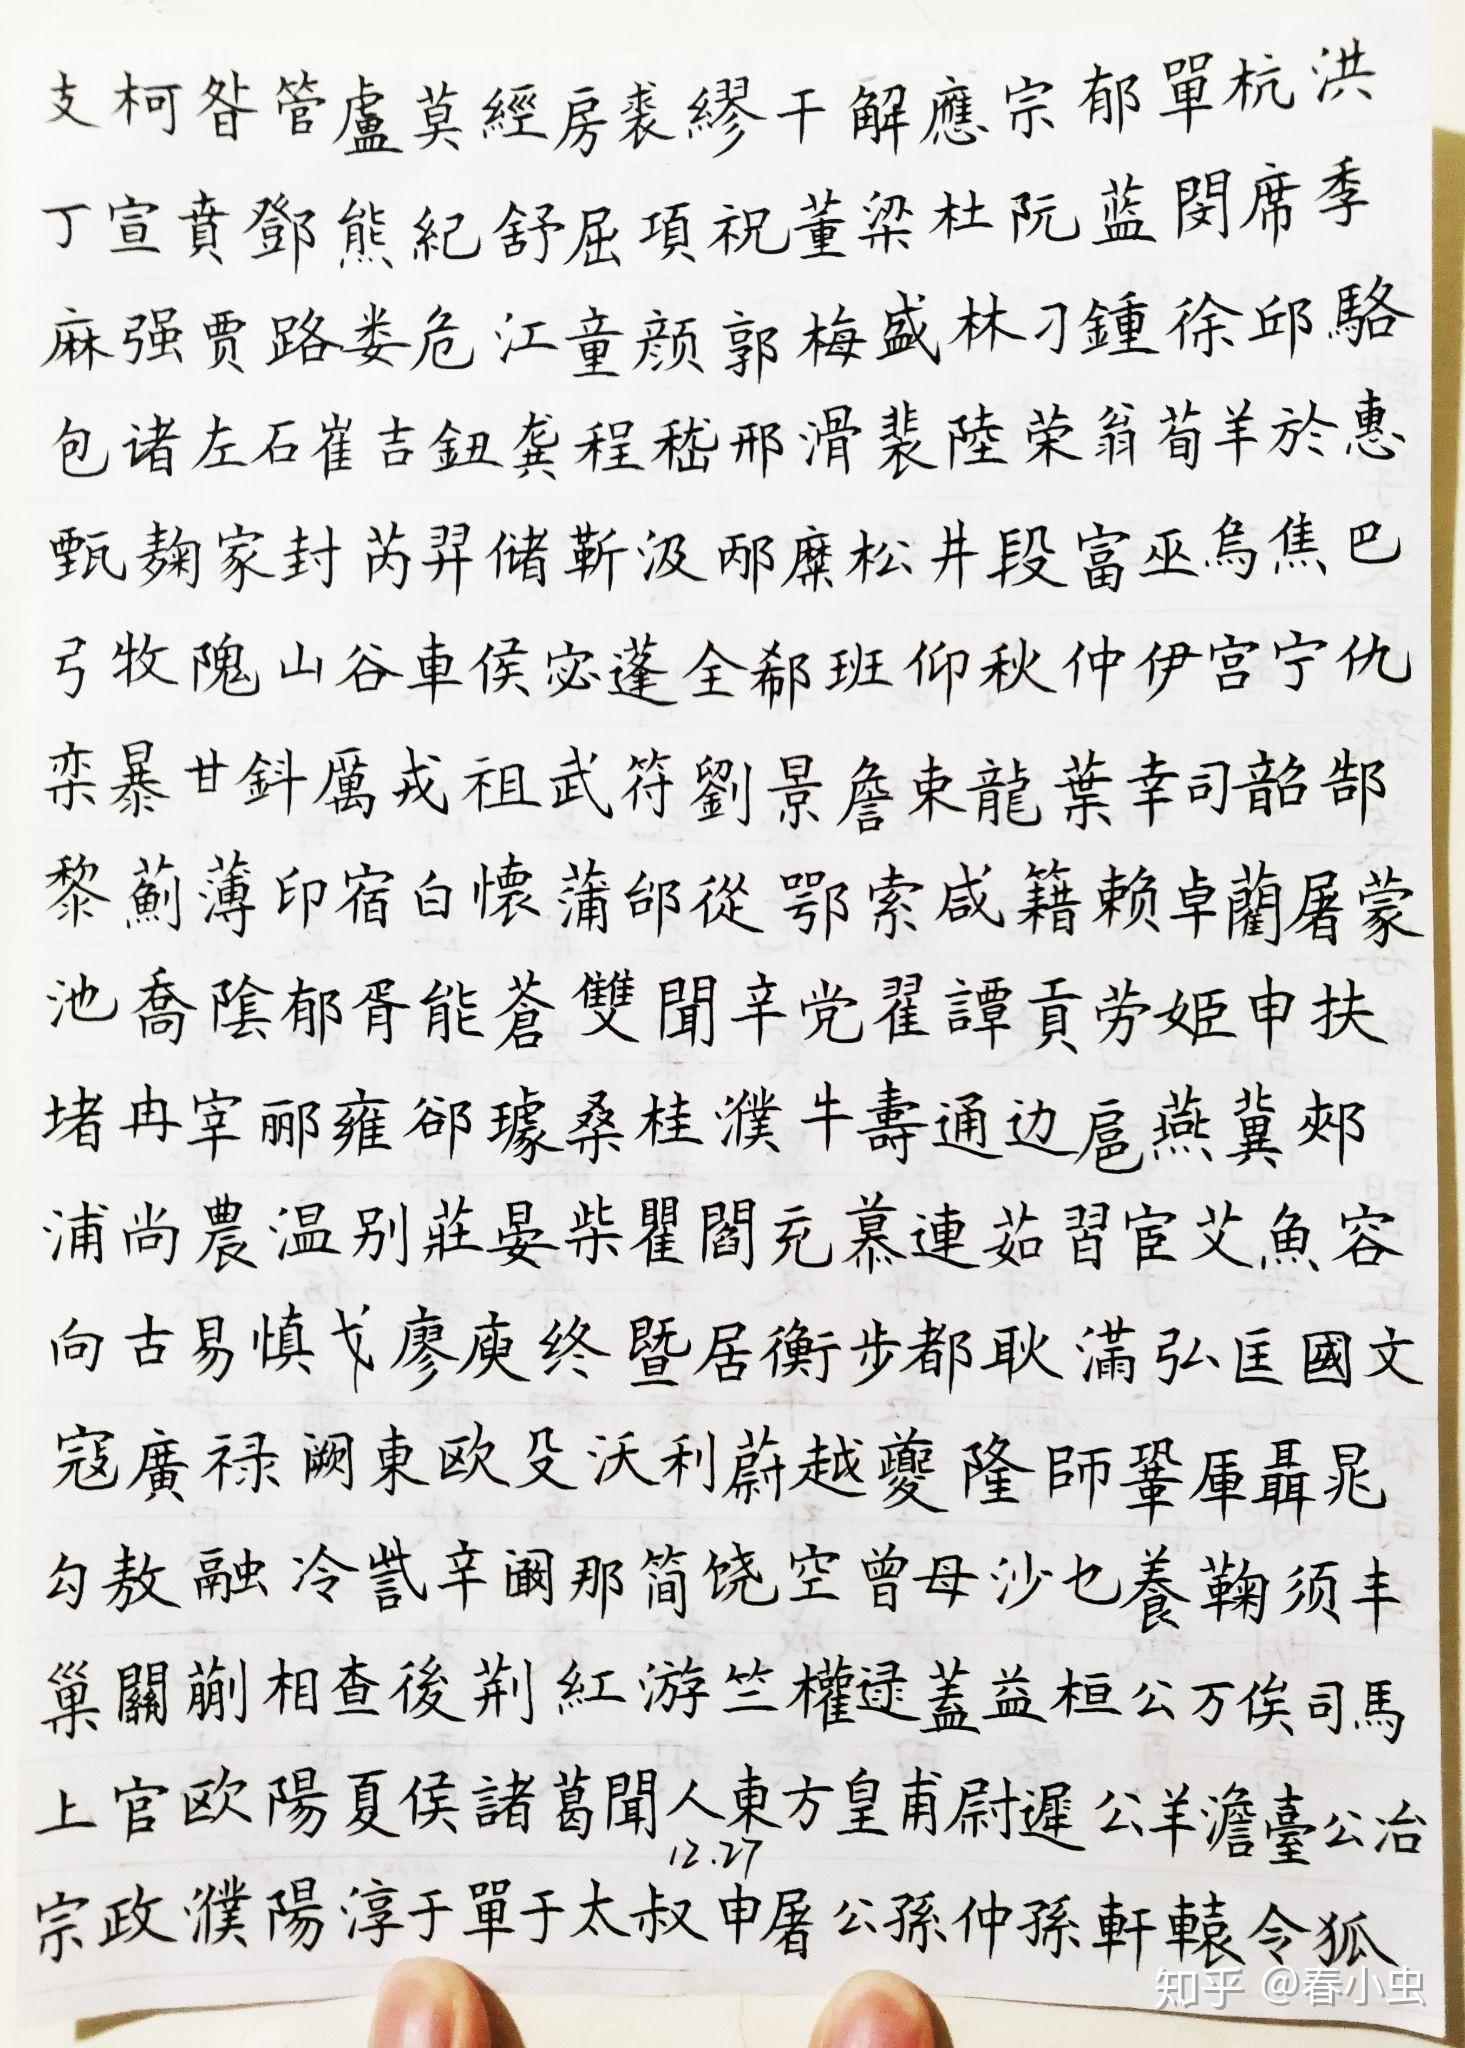 支柯昝管盧莫經房裘繆干解應宗郁單杭洪
丁宣賁鄧熊紀舒屈項祝董梁杜阮蓝閔席季
麻强贾路娄危江童颜郭梅盛林刁鍾徐邱駱
包诸左石崔吉鈕龚程嵇邢滑裴陸荣翁荀羊於惠
甄麹家封芮羿储靳汲邴糜松井段富巫烏焦巴
弓牧隗山谷車侯宓蓬全郗班仰秋仲伊宫宁仇
栾暴甘鈄厲戎祖武符劉景詹束龍葉幸司韶郜
黎薊薄印宿白懷蒲邰從鄂索咸籍赖卓藺屠蒙
池喬陰郁胥能蒼雙聞辛党翟譚貢劳姬申扶
堵冉宰郦雍郤璩桑桂濮牛壽通边扈燕冀郏
浦尚農温别莊晏柴瞿閻充慕連茹習宦艾魚容
向古易慎戈廖庾终暨居衡步都耿滿弘匡國文
寇廣禄阙東欧殳沃利蔚越夔隆師鞏厍聶晁
勾敖融冷訾辛阚那简饶空曾母沙乜養鞠须丰
巢關蒯相查後荆紅游竺權逯蓋益桓公万俟司馬
上官欧陽夏侯諸葛聞人東方皇甫尉遲公羊澹臺公冶
12.27
宗政濮陽淳于單于太叔申屠公孫仲孫軒轅令狐
知乎 @春小虫